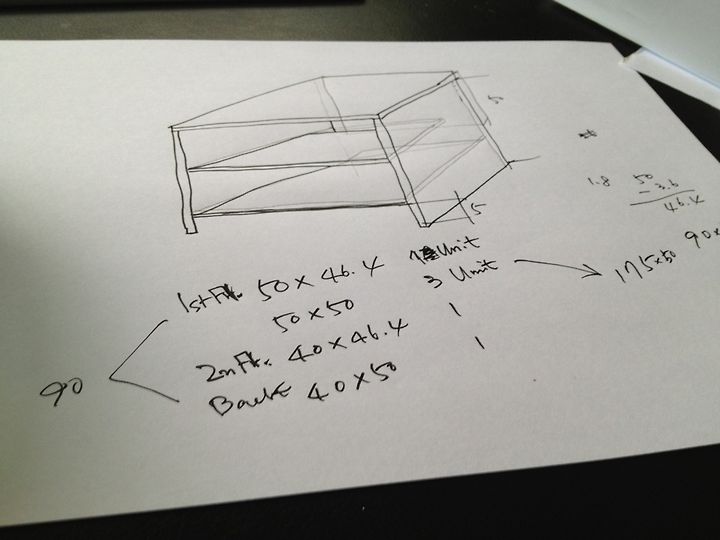 5
5
1.8
50
- 3.6
46.4
1st Fl. 50 x 46.4 1 Unit
50 x 50 3 Unit
175 x 50
90 x
2n Fl. 40 x 46.4 1
Back 40 x 50 1
90